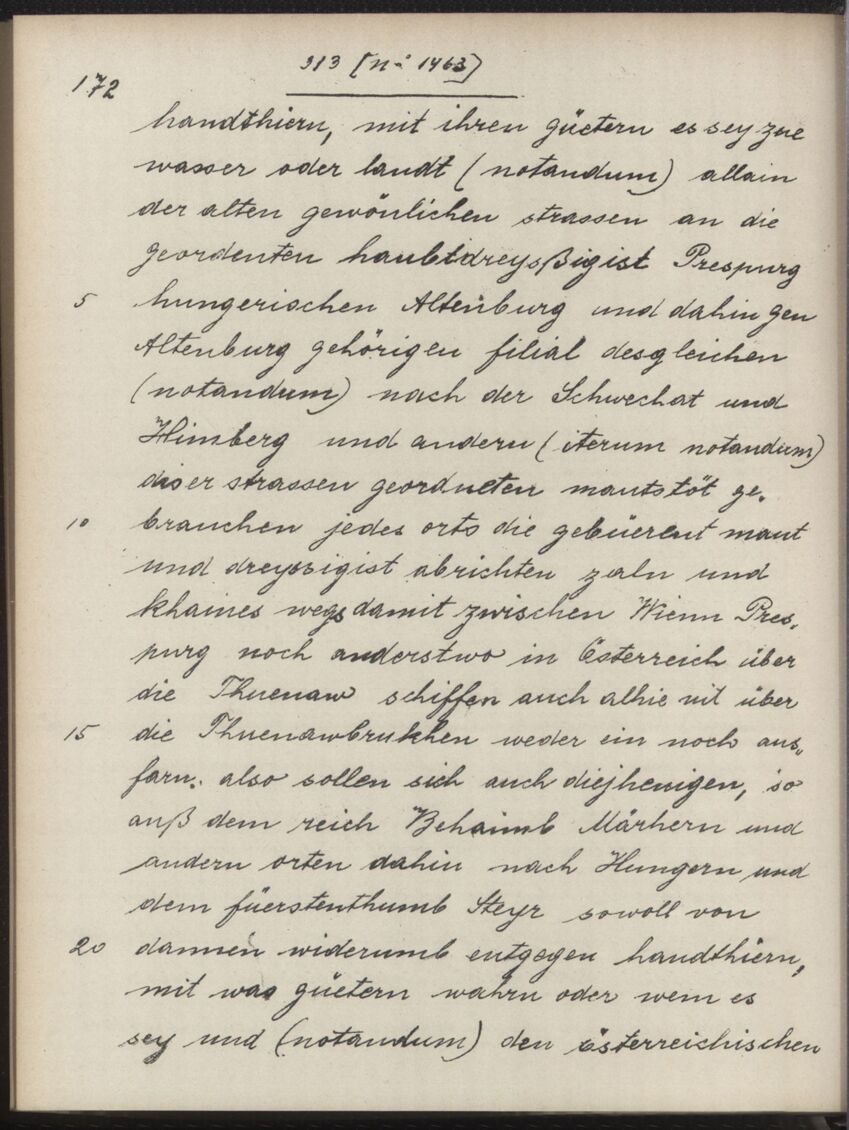 313 [No 1463]
172
handthiern, mit ihren güetern es sey zue
wasser oder landt (notandum) allain
der alten gewönlichen strassen an die
geordenten haubtdreysßigist Prespurg
5 hungerischen Altenburg und dahin gen
Altenburg gehörigen filial desgleichen
(notandum) nach der Schwechat und
Himberg und andern (iterum notandum)
diser strassen geordneten mautstöt ge-
10 brauchen jedes orts die gebüerent maut
und dreyssigist abrichten zaln und
khaines wegs damit zwischen Wienn Pres-
purg noch anderstwo in Österreich über
die Thuenaw schiffen auch alhie nit über
15 die Thuenawbrukhen weder ein noch aus-
farn. also sollen sich auch diejhenigen, so
auß dem reich Behaimb Märhern und
andern orten dahin nach Hungern und
dem füerstenthumb Steyr sowoll von
20 dannen widerumb entgegen handthiern,
mit was güetern wahrn oder wem es
sey und (notandum) den österreichischen